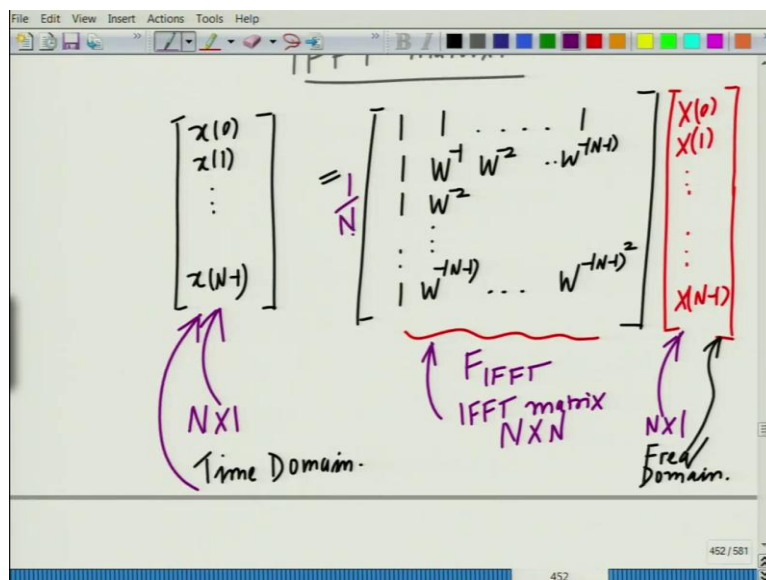 File Edit View Insert Actions Tools Help
IFFT matrix.
x(0)
x(1)
⋮
x(N-1)
= 1/N
1 1 . . . . 1
1 W^-1 W^-2 .. W^-(N-1)
1 W^-2
⋮ ⋮
1 W^-(N-1) ... W^-(N-1)^2
X(0)
X(1)
⋮
⋮
X(N-1)
F_IFFT
IFFT matrix
NXN
NX1
Time Domain.
NX1
Freq
Domain.
452 / 581
452